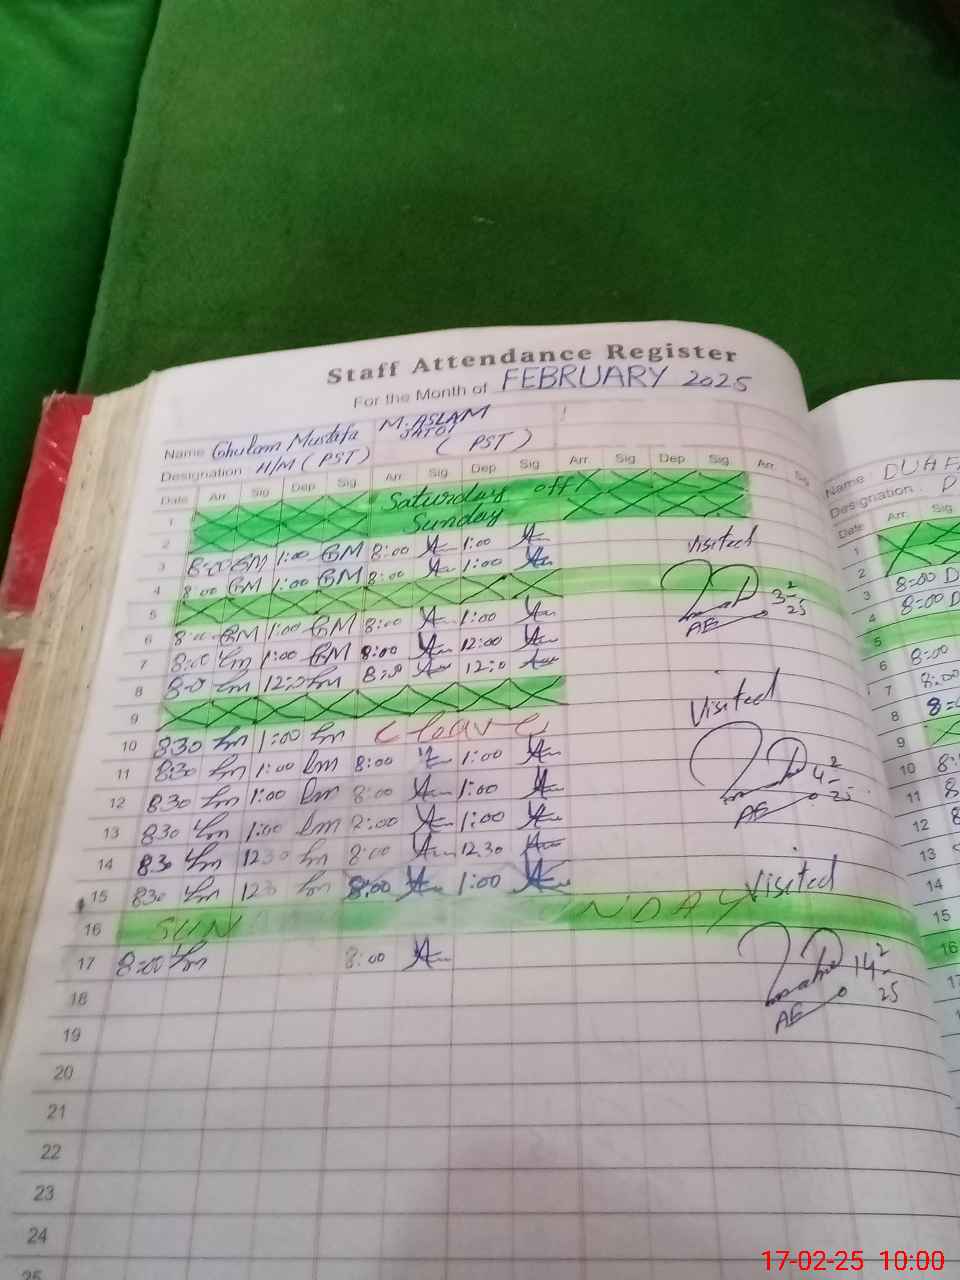 Staff Attendance Register
For the Month of FEBRUARY 2025
Name Ghulam Mustafa M. ASLAM JATOI
Designation H/M (PST) (PST)
Date Arr Sig Dep Sig Arr. Sig Dep Sig Arr. Sig Dep Sig Arr. Sig
1 Saturday off
2 Sunday
3 8:00 GM 1:00 GM 8:00 1:00
4 8:00 GM 1:00 GM 8:00 1:00
5
6 8:00 GM 1:00 GM 8:00 1:00
7 8:00 1:00 GM 8:00 12:00
8 8:0 12:0 8:0 12:0
9
10 830 1:00 C leave
11 8:30 1:00 8:00 1:00
12 830 1:00 8:00 1:00
13 830 1:00 8:00 1:00
14 830 1230 8:00 12.30
15 830 123 8:00 1:00
16 SUN NDAY
17 8:00 8:00
18
19
20
21
22
23
24
25
Visited
3-2-25
AE
Visited
4-2-25
AE
Visited
14-2-25
AE
Name DUA
Designation D
Date Arr. Sig
1
2
3 8:00 D
4 8:00 D
5
6 8:00
7 8:00
8
9
10
11
12
13
14
15
16
17-02-25 10:00